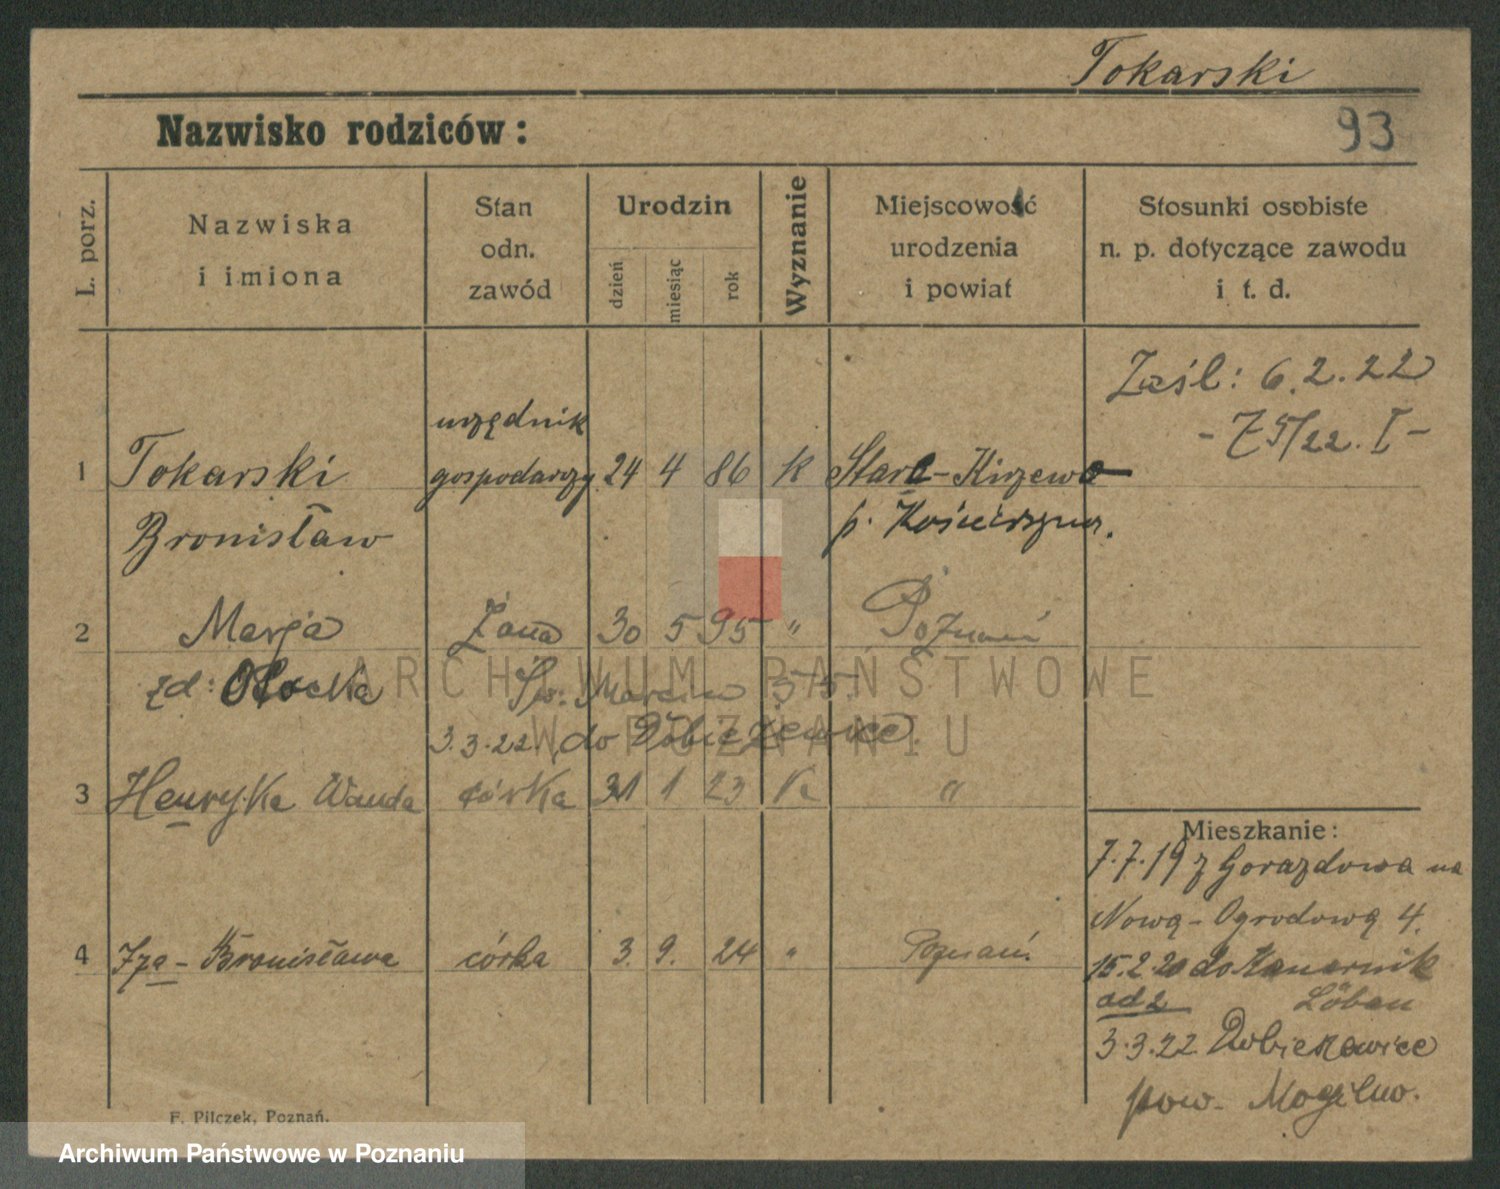 Tokarski
Nazwisko rodziców:
93
L. porz.
Nazwiska
i imiona
Stan
odn.
zawód
Urodzin
dzień
miesiąc
rok
Wyznanie
Miejscowość
urodzenia
i powiat
Stosunki osobiste
n. p. dotyczące zawodu
i t. d.
Zaśl: 6.2.22
- 75/22. I -
urzędnik
1 Tokarski gospodarzy 24 4 86 k Stare-Kiszewo
Bronisław p. Kościerzyna.
2 Marja Żona 30 5 95 " Poznań
zd: Św. Marcin 55.
3.3.22. do Dobieżewice.
3 Henryka Wanda córka 31 1 23 k "
4 Iza - Bronisława córka 3. 9. 24 " Poznań.
Mieszkanie:
7.7.19 z Gorazdowa na
Nową-Ogrodową 4.
15.2.20 do
ad 2 Löbau
3.3.22 Dobieżewice
pow. Mogilno.
F. Pilczek, Poznań.
ARCHIWUM PAŃSTWOWE
W POZNANIU
Archiwum Państwowe w Poznaniu